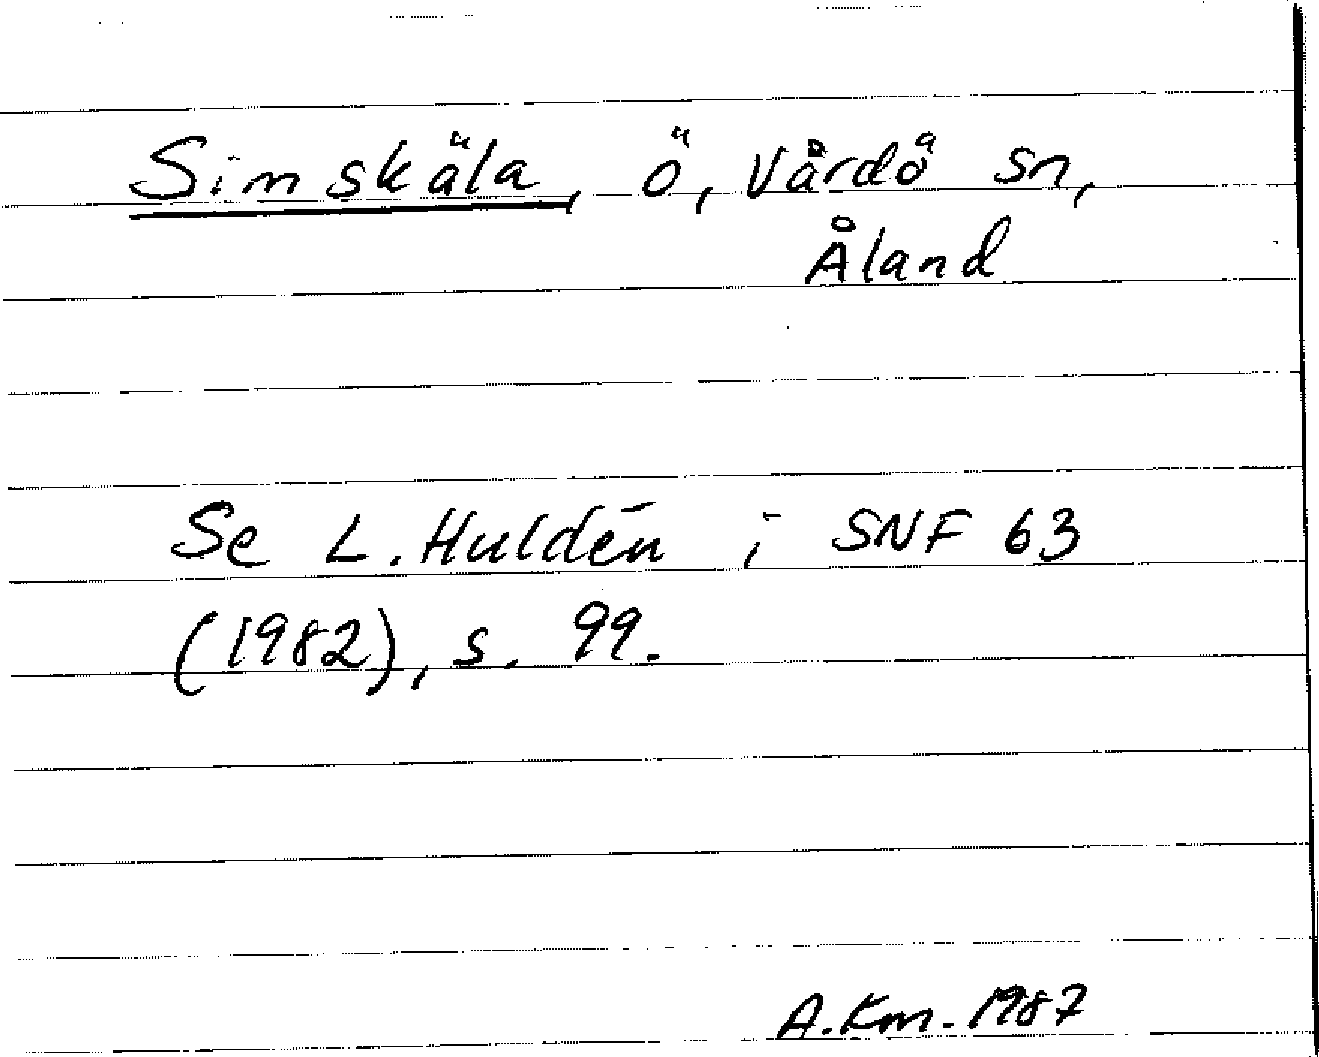 Simskäla, ö, Vårdö sn,
Åland
Se L. Huldén i SNF 63
(1982), s. 99.
A.Km. 1987